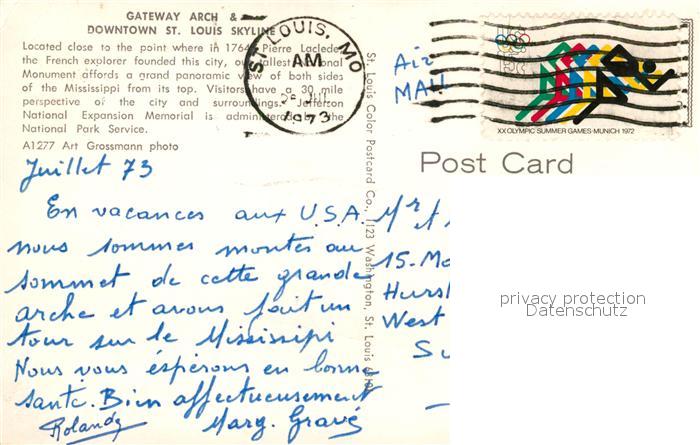 GATEWAY ARCH &
DOWNTOWN ST. LOUIS SKYLINE
Located close to the point where in 1764, Pierre Laclede
the French explorer founded this city, our tallest National
Monument affords a grand panoramic view of both sides
of the Mississippi from its top. Visitors have a 30 mile
perspective of the city and surroundings. Jefferson
National Expansion Memorial is administered by the
National Park Service.
A1277 Art Grossmann photo
ST. LOUIS, MO
AM
1973
Air
MAIL
XX OLYMPIC SUMMER GAMES·MUNICH 1972
Post Card
St. Louis Color Postcard Co., 1123 Washington, St. Louis 63101
Juillet 73
En vacances aux U.S.A.
nous sommes montés au
sommet de cette grande
arche et avons fait un
tour sur le Mississipi
Nous vous espérons en bonne
santé. Bien affectueusement
Rolande Marg. Gravé
Mr et
15. Mo
Hurst
West
Su
privacy protection
Datenschutz